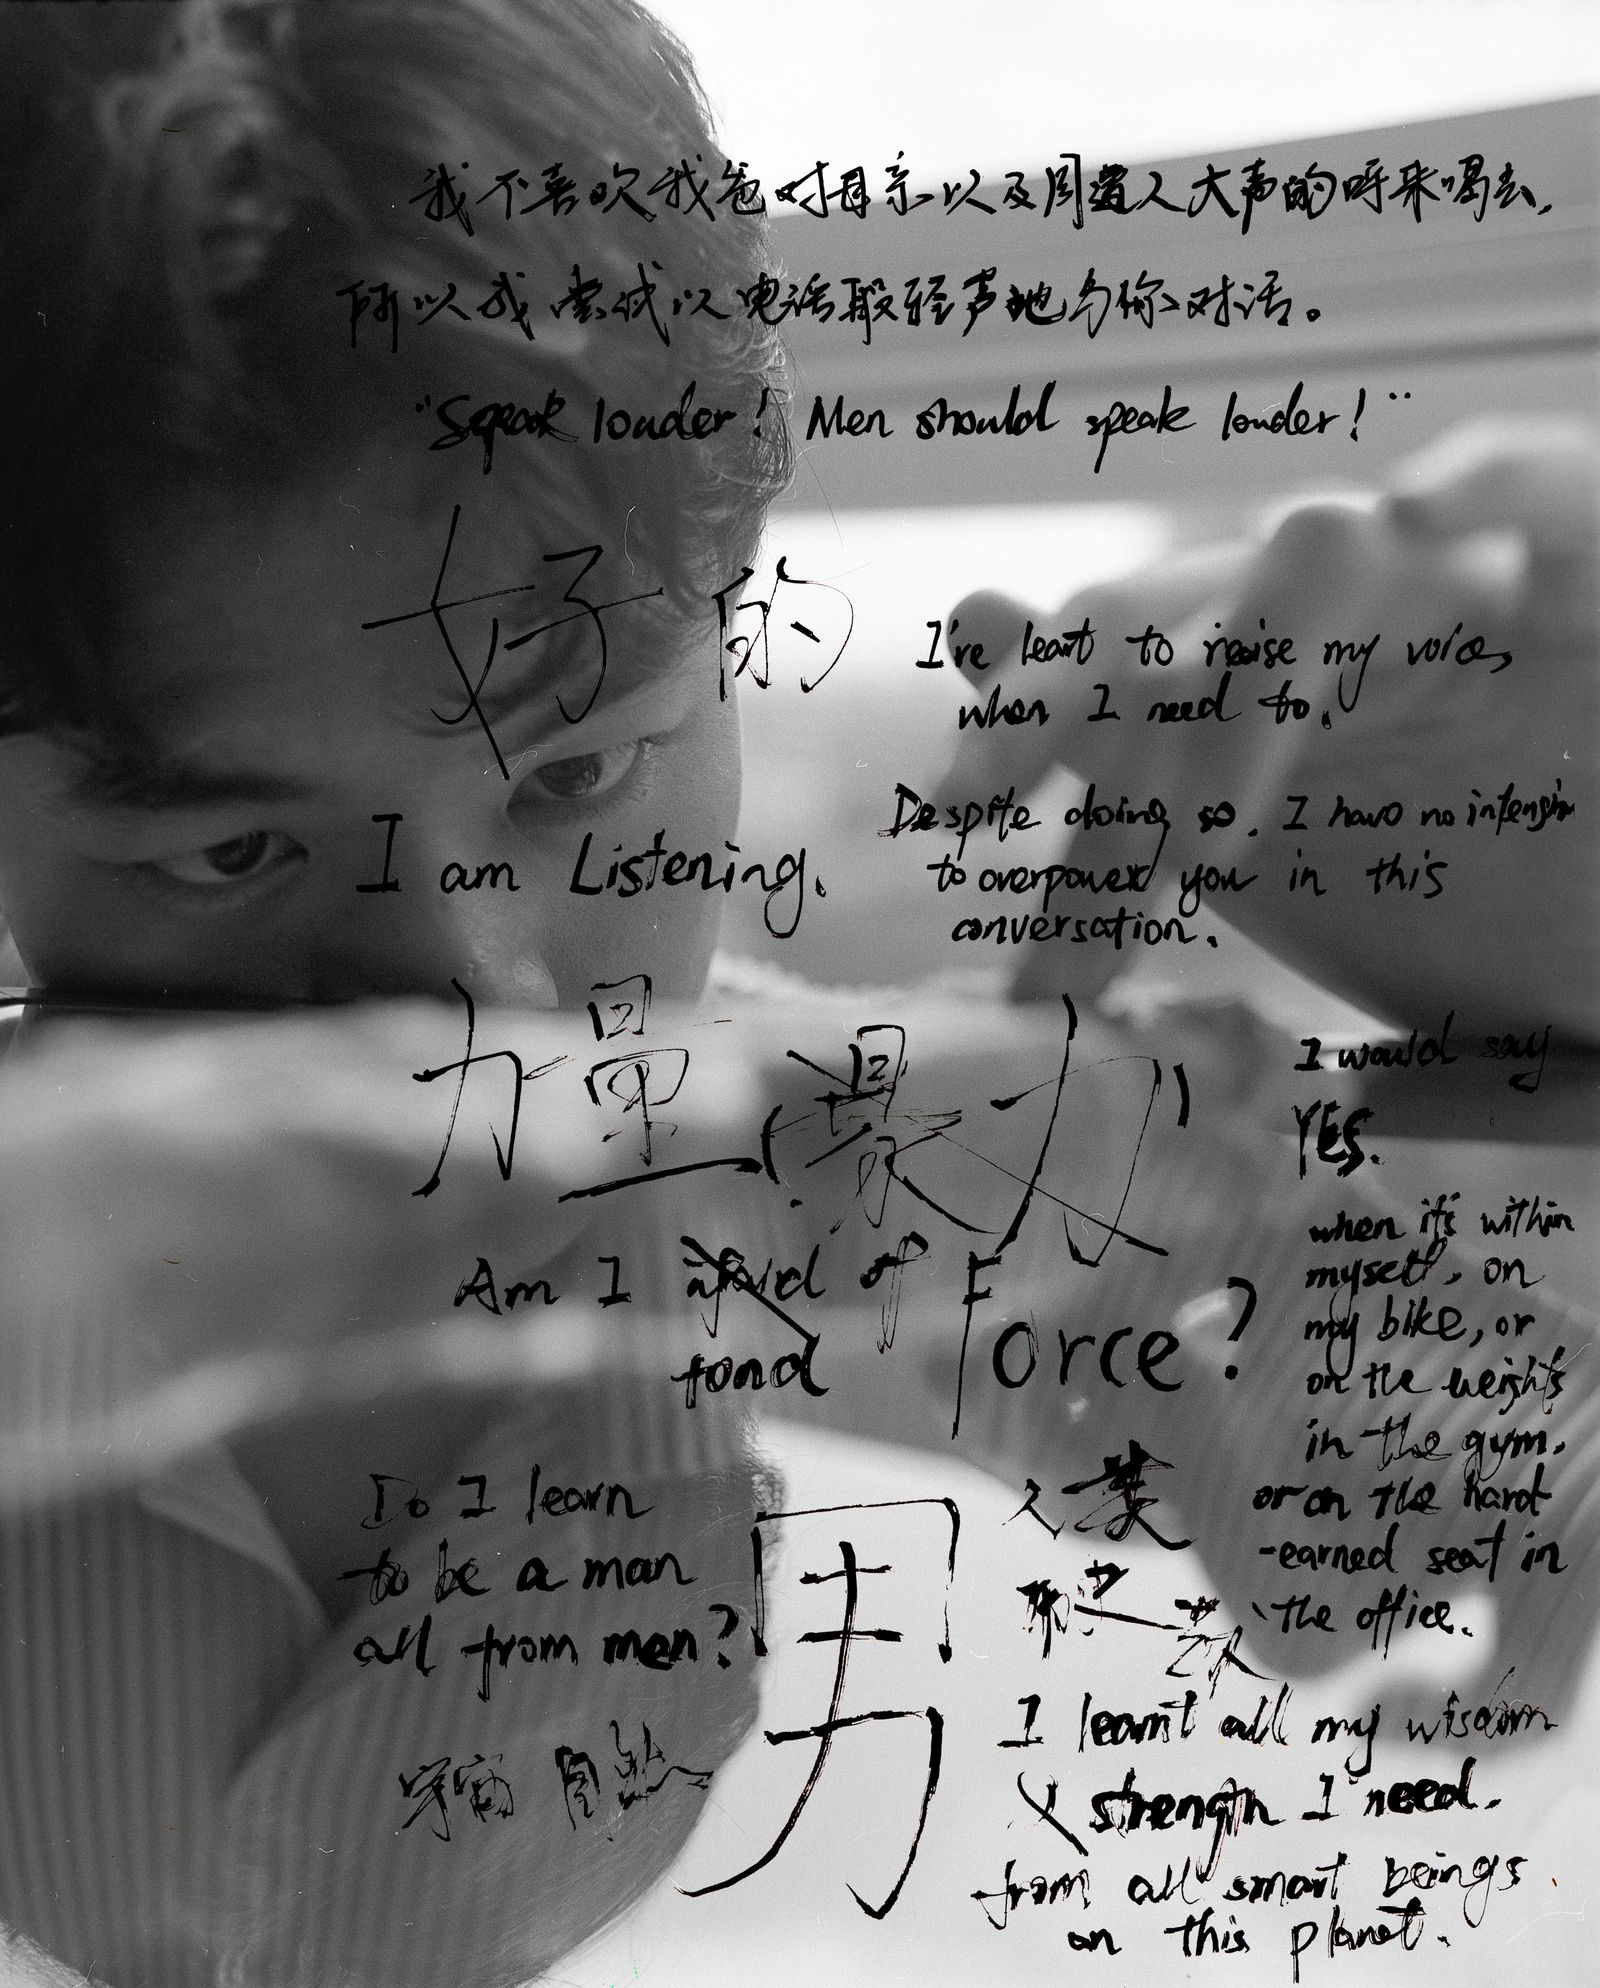 我不喜欢我爸对母亲以及周遭人大声的呼来喝去,
所以我尝试以电话般轻声地与你对话。
"Speak louder! Men should speak louder!"
好的
I've leant to raise my voice,
when I need to.
I am Listening.
Despite doing so. I have no intension
to overpower you in this
conversation.
力量, 暴力
Am I afraid of Force?
fond
I would say
YES.
when it's within
myself, on
my bike, or
on the weights
in the gym.
or on the hard
-earned seat in
the office.
Do I learn
to be a man
all from men?
男
人类
宇宙 自然
I learnt all my wisdom
strength I need.
from all smart beings
on this planet.